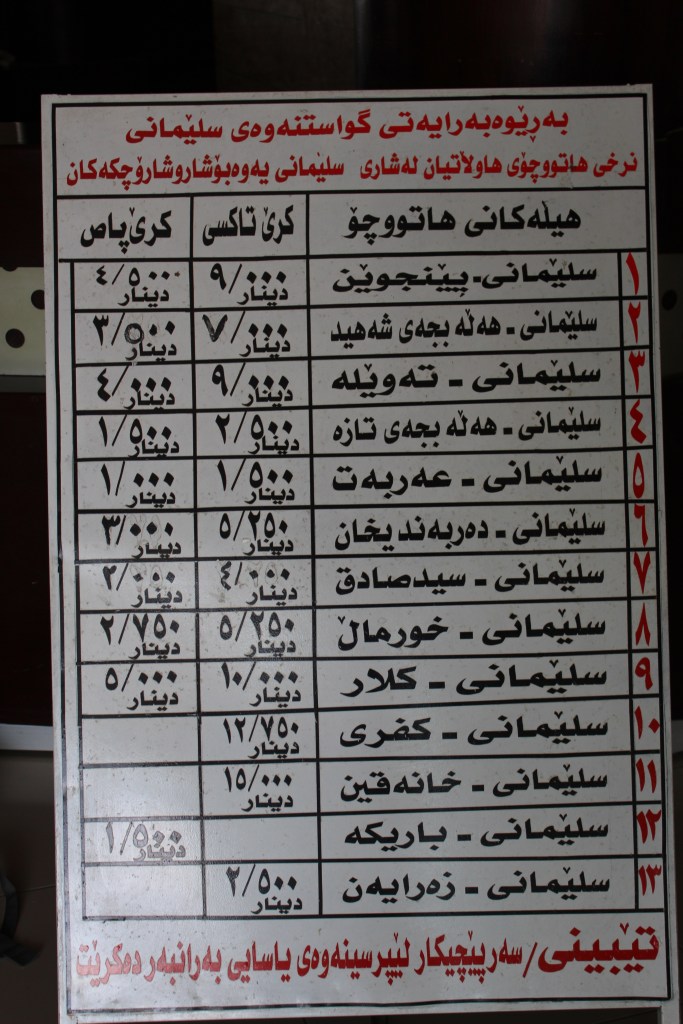 بەڕێوەبەرایەتی گواستنەوەی سلێمانی
نرخی هاتووچۆی هاوڵاتیان لەشاری سلێمانی یەوەبۆشاروشارۆچکەکان
هێڵەکانی هاتووچۆ کرێ تاکسی کرێ پاص
١ سلێمانی - پێنجوێن ٩/٠٠٠ دینار ٤/٥٠٠ دینار
٢ سلێمانی - هەڵەبجەی شەهید ٧/٠٠٠ دینار ٣/٥٠٠ دینار
٣ سلێمانی - تەوێلە ٩/٠٠٠ دینار ٤/٠٠٠ دینار
٤ سلێمانی - هەڵەبجەی تازە ٢/٥٠٠ دینار ١/٥٠٠ دینار
٥ سلێمانی - عەربەت ١/٥٠٠ دینار ١/٠٠٠ دینار
٦ سلێمانی - دەربەندیخان ٥/٢٥٠ دینار ٣/٠٠٠ دینار
٧ سلێمانی - سیدصادق ٤/٠٠٠ دینار ٢/٠٠٠ دینار
٨ سلێمانی - خورماڵ ٥/٢٥٠ دینار ٢/٧٥٠ دینار
٩ سلێمانی - کلار ١٠/٠٠٠ دینار ٥/٠٠٠ دینار
١٠ سلێمانی - کفری ١٢/٧٥٠ دینار
١١ سلێمانی - خانەقین ١٥/٠٠٠ دینار
١٢ سلێمانی - باریکە ١/٥٠٠ دینار
١٣ سلێمانی - زەرایەن ٢/٥٠٠ دینار
تێبینی/ سەرپێچیکار لێپرسینەوەی یاسایی بەرانبەر دەکرێت